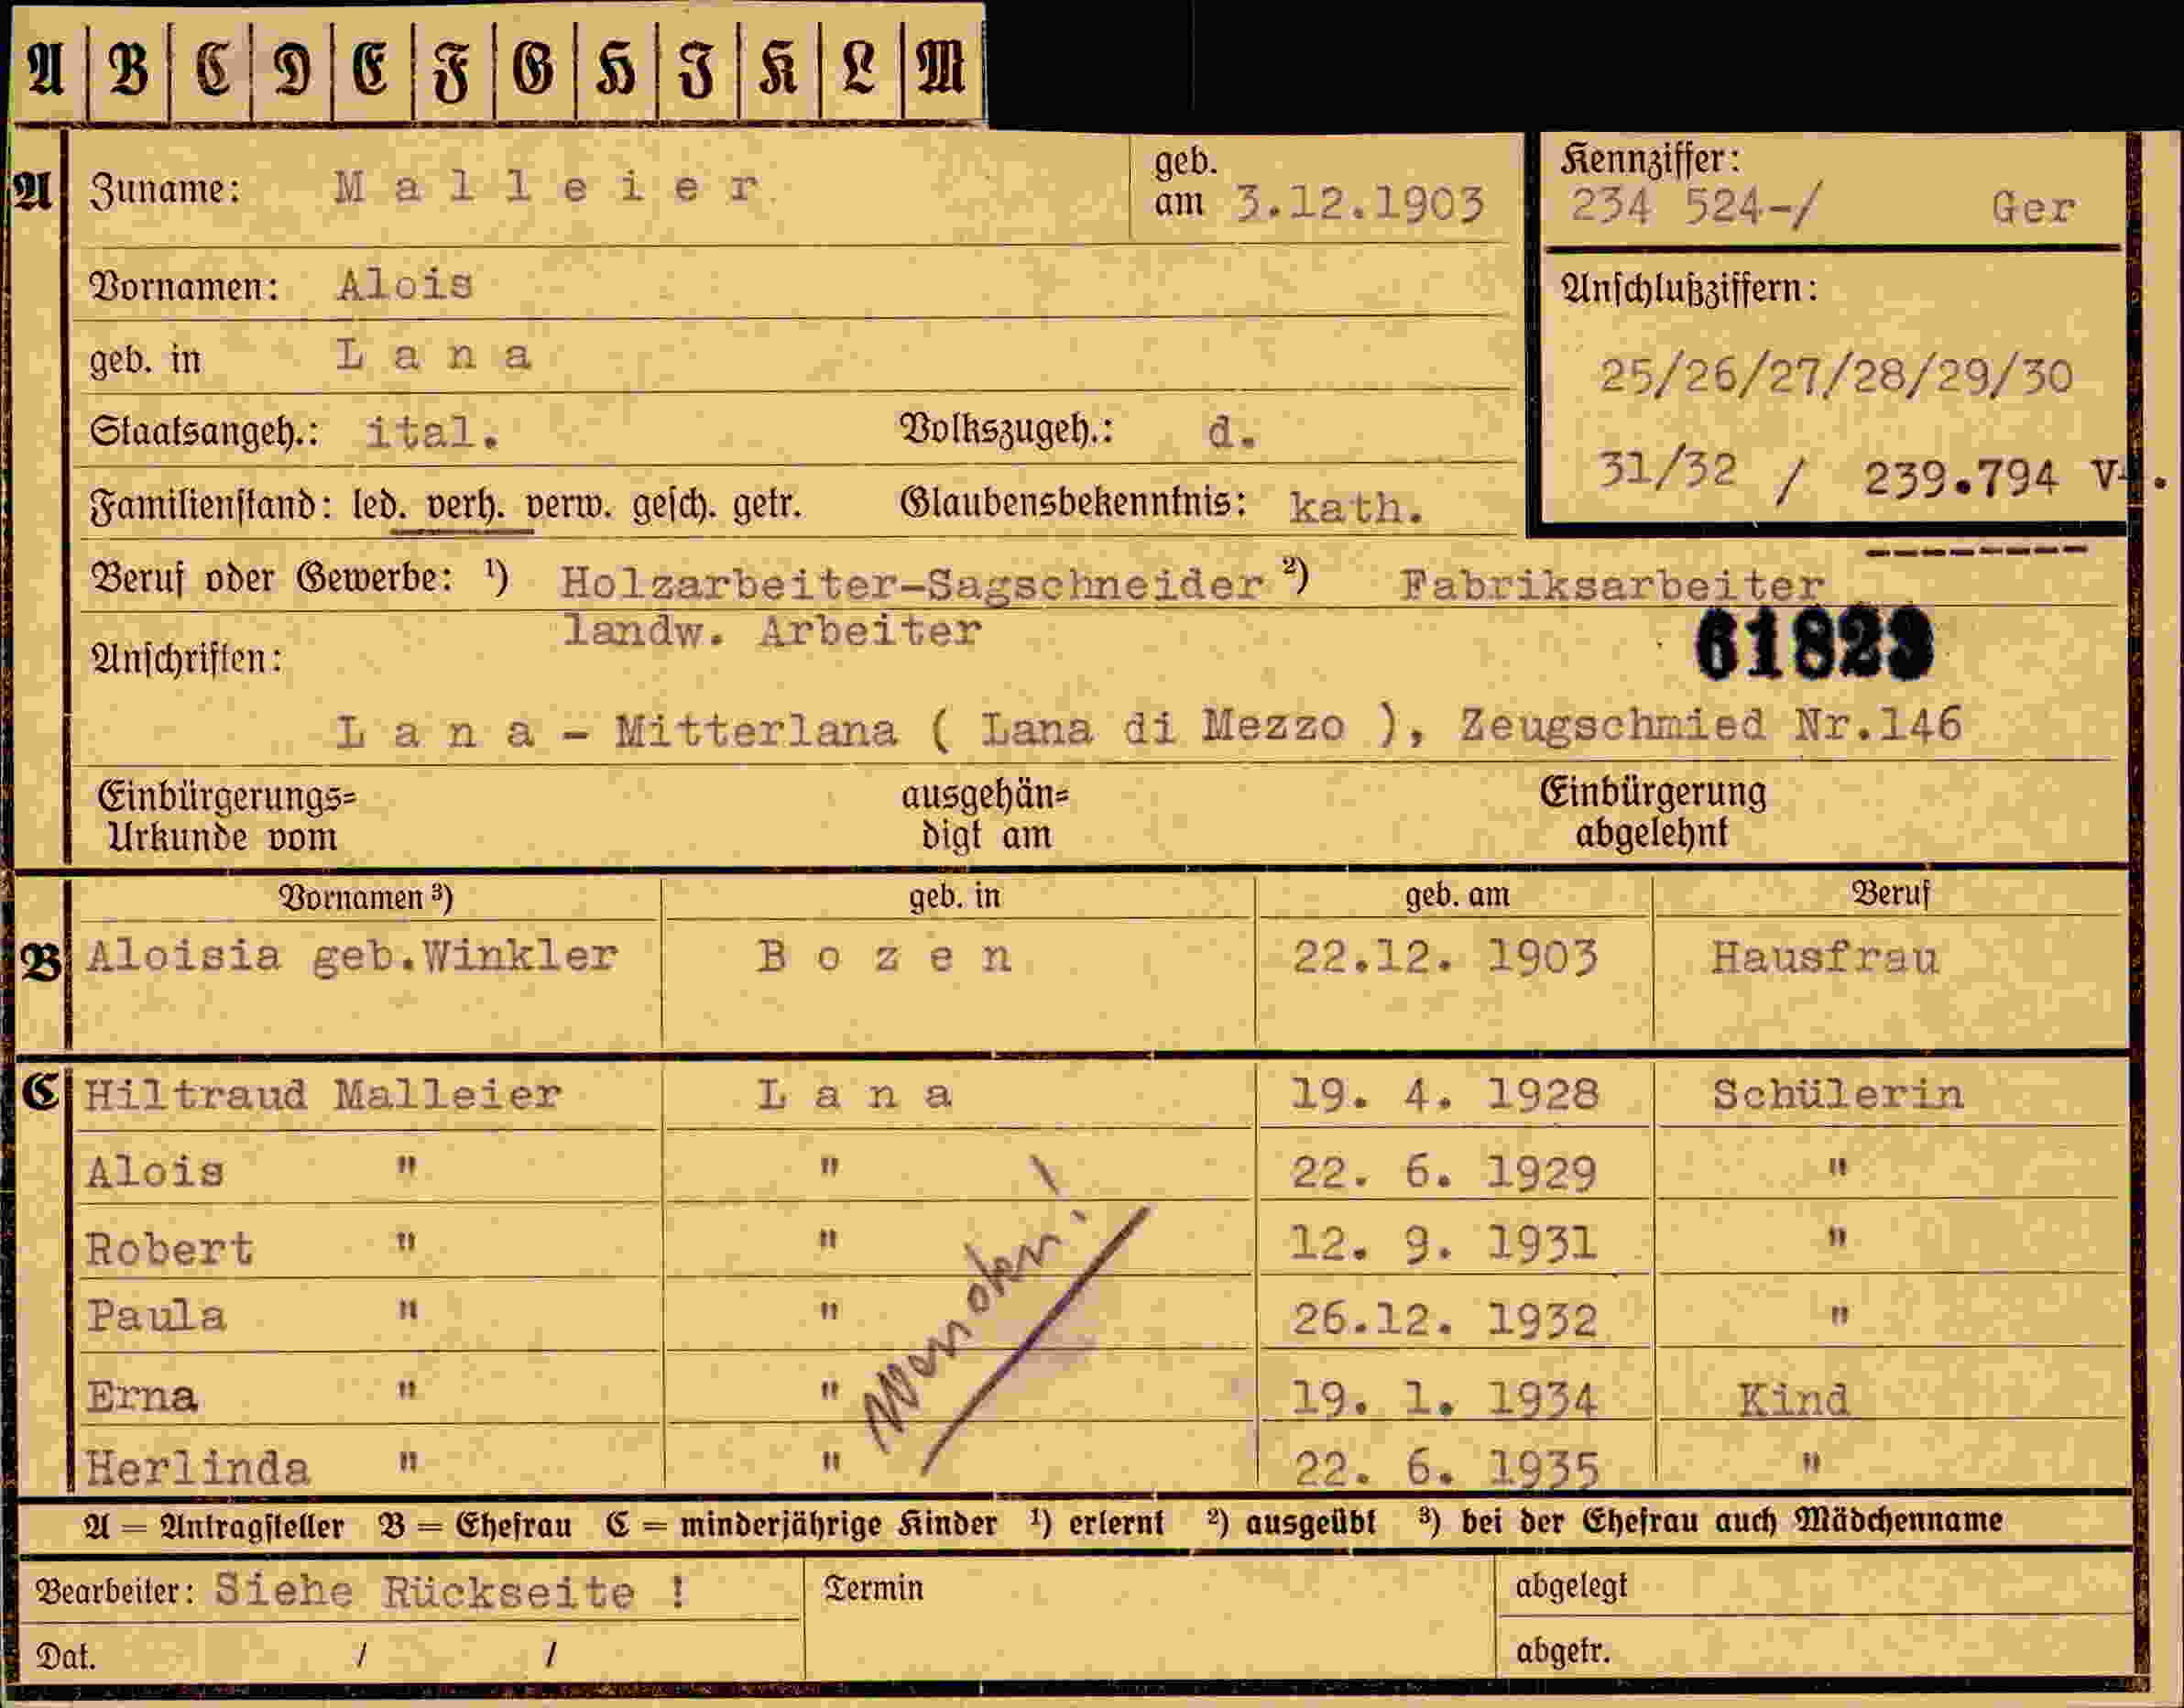 A B C D E F G H I K L M
A Zuname: Malleier geb. am 3.12.1903
Kennziffer: 234 524-/ Ger
Vornamen: Alois
Anschlußziffern:
geb. in Lana
25/26/27/28/29/30
Staatsangeh.: ital. Volkszugeh.: d.
31/32 / 239.794 V-.
Familienstand: led. verh. verw. gesch. getr. Glaubensbekenntnis: kath.
Beruf oder Gewerbe: ¹) Holzarbeiter-Sagschneider ²) Fabriksarbeiter
landw. Arbeiter
Anschriften:
Lana - Mitterlana ( Lana di Mezzo ), Zeugschmied Nr.146
Einbürgerungs= ausgehän= Einbürgerung
Urkunde vom digt am abgelehnt
Vornamen ³) geb. in geb. am Beruf
B Aloisia geb.Winkler Bozen 22.12. 1903 Hausfrau
C Hiltraud Malleier Lana 19. 4. 1928 Schülerin
Alois " " 22. 6. 1929 "
Robert " " 12. 9. 1931 "
Paula " " 26.12. 1932 "
Erna " " 19. 1. 1934 Kind
Herlinda " " 22. 6. 1935 "
A = Antragsteller B = Ehefrau C = minderjährige Kinder ¹) erlernt ²) ausgeübt ³) bei der Ehefrau auch Mädchenname
Bearbeiter: Siehe Rückseite ! Termin abgelegt
Dat. / / abgetr.